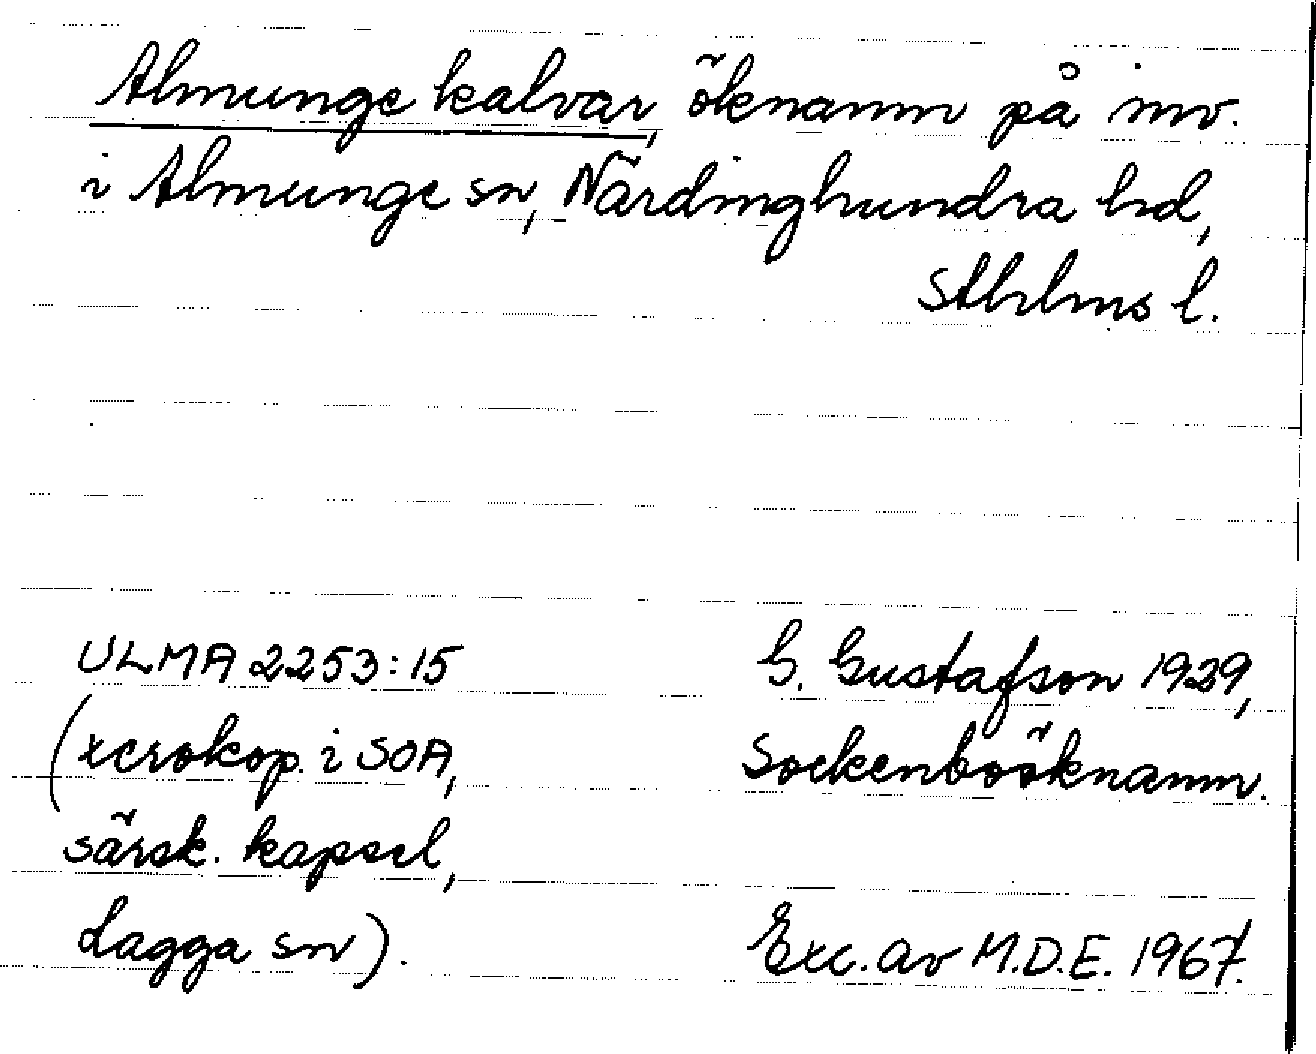 Almunge kalvar, öknamn på inv.
i Almunge sn, Närdinghundra hd,
Sthlms l.
ULMA 2253:15
(xerokop. i SOA,
särsk. kapsel,
Lagga sn).
G. Gustafson 1939,
Sockenboöknamn.
Exc. av M.D.E. 1967.